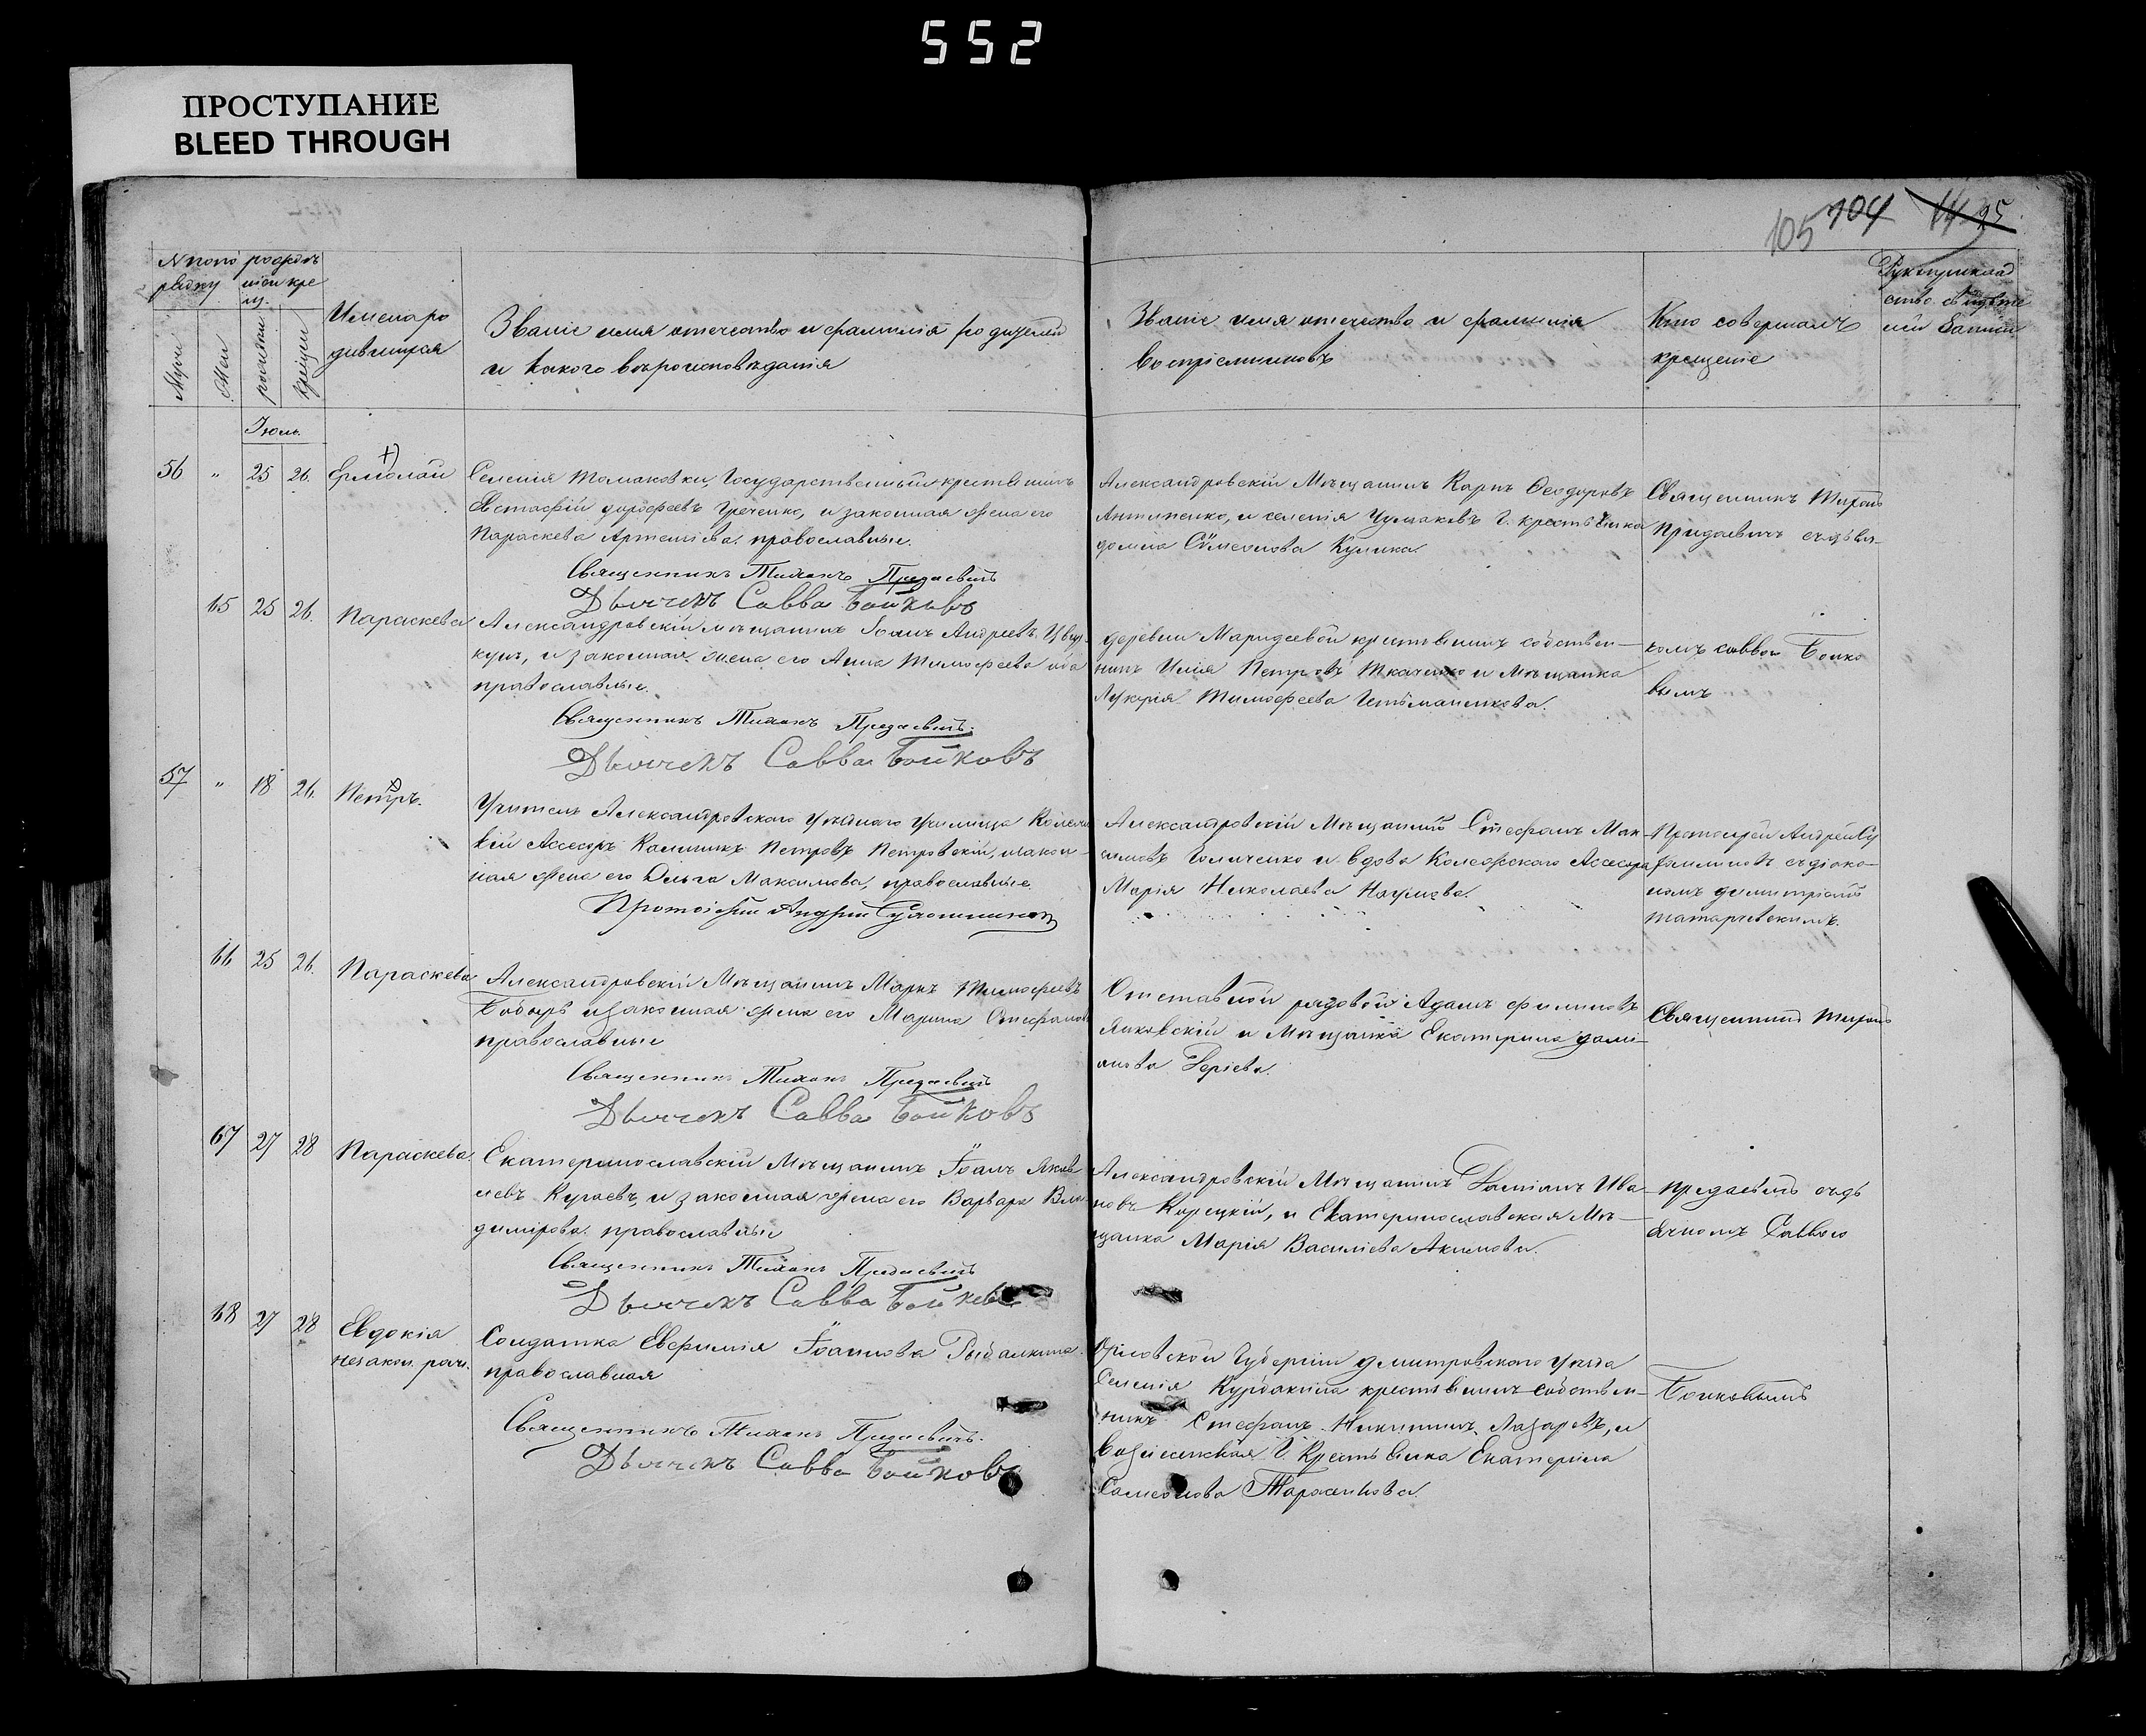 552
ПРОСТУПАНИЕ
BLEED THROUGH
105 104
Имена ро
дившихся
Званіе имя отечество и фамилія родителей
и какого вѣроисповѣданія
Званіе имя отечество и фамилія
воспріемниковъ
Кто совершалъ
крещеніе
Іюль
56 " 25 26. Ермолай
Селенія Томаковки, Государственный крестьянинъ
Евстафій Дорофеевъ Греченко, и законная жена его
Параскева Артеміева. православные.
Священникъ Тихонъ Придаевичъ
Дьячекъ Савва Бойковъ
Александровскій Мѣщанинъ Карпъ Ѳеодоровъ
Антипенко, и селенія Чумаковъ Г. крестьянка
домна Сѵмеонова Кулика.
Священникъ Тихонъ
Придаевичъ съ дьяч-
65 25 26. Параскева
Александровскій мѣщанинъ Іоанъ Андреевъ
и законная жена его Анна Тимофеева оба
православные.
Священникъ Тихонъ Придаевичъ.
Дьячекъ Савва Бойковъ
деревни крестьянинъ собствен-
никъ Илія Петровъ Ткаченко и Мѣщанка
Лукерія Тимофеева Гетьманенкова.
комъ Саввою Бойко
вымъ
57 " 18 26. Петръ.
Учитель Александровскаго Уѣзднаго Училища Коллеж
скій Ассесоръ Калиникъ Петровъ Петровскій, и закон-
ная жена его Ольга Максимова, православные.
Протоіерей Андрей
Александровскій Мѣщанинъ Стефанъ Мак-
симовъ Голиченко и вдова Колежскаго Ассесора
Марія Николаева Наумова.
Протоіерей Андрей
съ діако-
номъ димитріемъ
Татарчевскимъ.
66 25 26. Параскева
Александровскій Мѣщанинъ Марко Тимофеевъ
Бобырь и законная жена его Марина Стефанова
православные
Священникъ Тихонъ Придаевичъ
Дьячекъ Савва Бойковъ
Отставной рядовой Адамъ Филиповъ
Янковскій и Мѣщанка Екатерина Дамі-
анова
Священникъ Тихонъ
67 27 28 Параскева.
Екатеринославскій Мѣщанинъ Іоанъ Яков
левъ и законная жена его Варвара Вла-
димірова. православные
Священникъ Тихонъ Придаевичъ
Дьячекъ Савва Бойковъ
Александровскій Мѣщанинъ Даміанъ Ива-
новъ Корецкій, и Екатеринославская Мѣ-
щанка Марія Василіева Акимова.
Придаевичъ съ дь
ячкомъ Саввою
68 27 28 Евдокія
незакон. рож.
Солдатка Евфимія Іоаннова Рыбалкина.
православная
Священникъ Тихонъ Придаевичъ.
Дьячекъ Савва Бойковъ
Орловской Губерніи Дмитровскаго Уѣзда
Селенія крестьянинъ собствен-
никъ Стефанъ Никитинъ Лазаревъ, и
Вознесенская Г. Крестьянка Екатерина
Самсонова Тарасенкова.
Бойковымъ